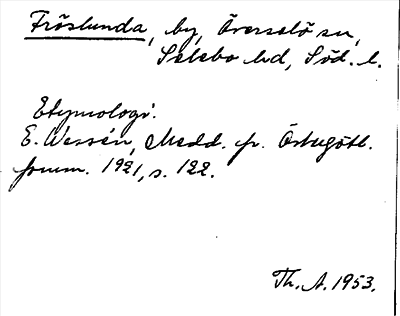 Fröslunda, by, Överselö sn,
Selebo hd, Söd. l.
Etymologi:
E. Wessén, Medd. fr. Östergötl.
fornm. 1921, s. 122.
Th. A. 1953.